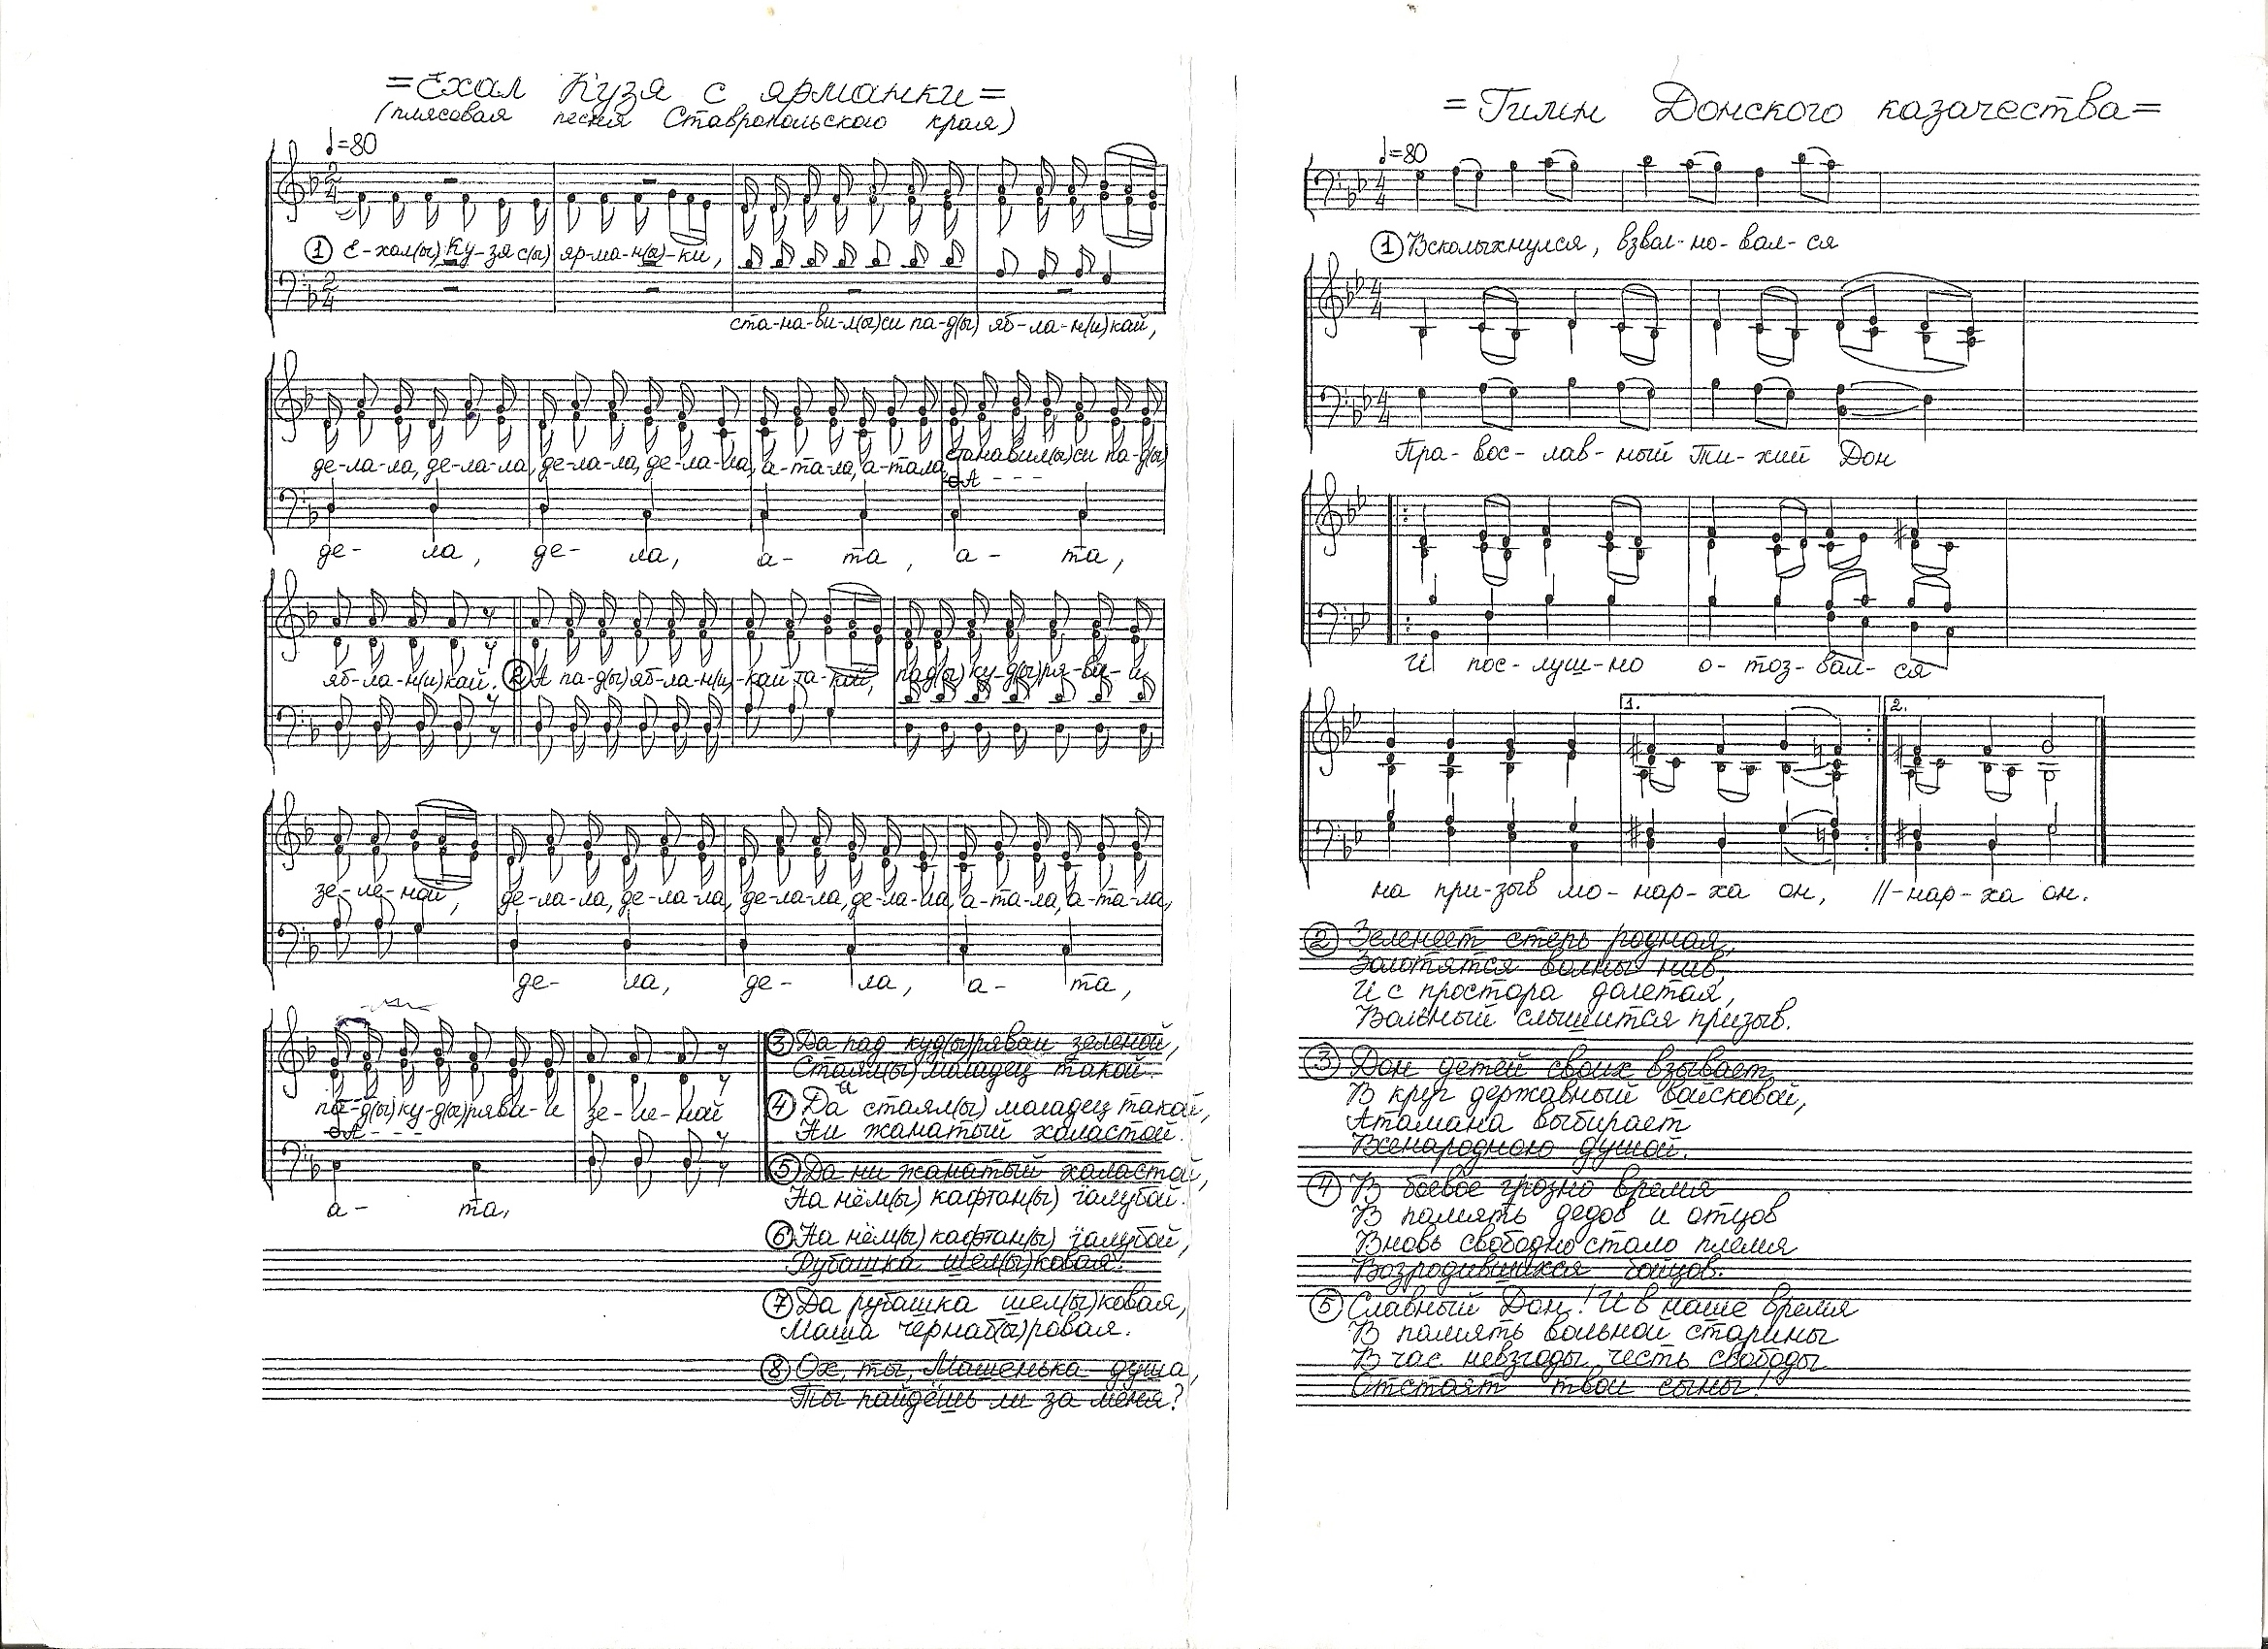 =Ехал Кузя с ярманки=
(плясовая песня Ставропольскаго края)
♩=80
2/4
① Е-хал(ы) Ку-зя с(ы) яр-ма-н(ы)-ки,
2/4
ста-на-ви-л(ы)си па-д(ы) яб-ла-н(и)кай,
де-ла-ла, де-ла-ла, де-ла-ла, де-ла-ла, а-та-ла, а-тала, станавил(ы)си па-д(ы)
А - - -
де- ла, де- ла, а- та, а- та,
яб-ла-н(и)кай. ② А па-д(ы) яб-ла-н(и)-кай та-кай, пад(ы) ку-д(ы)ря-ва-й
зе-ле-най, де-ла-ла, де-ла-ла, де-ла-ла, де-ла-ла, а-та-ла, а-та-ла,
де- ла, де- ла, а- та,
па-д(ы) ку-д(ы)ряви-й зе-ле-най
А - - -
а- та,
③ Да пад куд(ы)рявай зеленой,
Стаял(ы) маладец такой.
④ Да стаял(ы) маладец такой,
Ни жанатый халастой.
⑤ Да ни жанатый халастой,
На нём(ы) кафтан(ы) галубой.
⑥ На нём(ы) кафтан(ы) галубой,
Рубашка шел(ы)ковая.
⑦ Да рубашка шел(ы)ковая,
Маша чернаб(ы)ровая.
⑧ Ох, ты, Машенька душа,
Ты пайдёшь ли за меня?
=Гимн Донского казачества=
♩=80
4/4
① Всколыхнулся, взвал-но-вал-ся
4/4
4/4
Пра-вос-лав-ный Ти-хий Дон
И пос-луш-но о-тоз-вал-ся
1. 2.
на при-зыв мо-нар-ха он, //-нар-ха он.
② Зеленеет степь родная,
Золотятся волны нив,
И с простора долетая,
Вольный слышится призыв.
③ Дон детей своих взывает
В круг державный войсковой,
Атамана выбирает
Всенародною душой.
④ В боевое грозно время
В память дедов и отцов
Вновь свободно стало племя
Возродившихся бойцов.
⑤ Славный Дон! И в наше время
В память вольной старины
В час невзгоды честь свободы
Отстоят твои сыны!